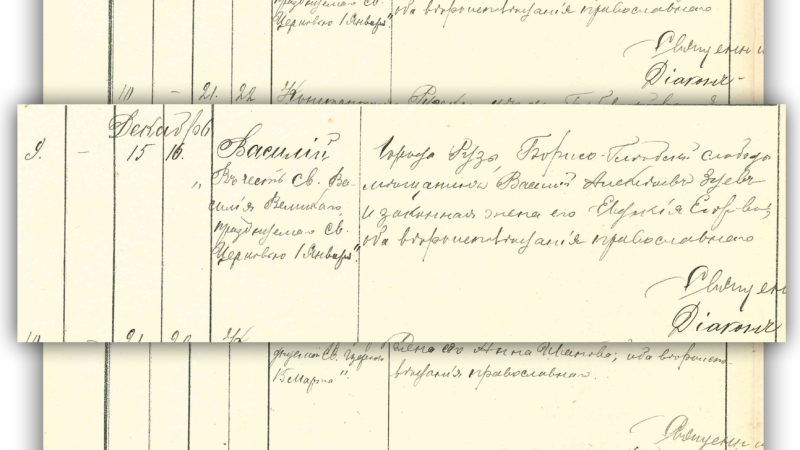 празднуемаго Св. оба вѣроисповѣданія православнаго
Церковью 1 Января".
Священни
Діаконъ
10 – 21. 22
Декабрь
9. – 15 16. Василій города Рузы, Борисо-Глѣбской слободы
"Въ честь Св. Ва- мѣщанинъ Василій Алексѣевъ Зуевъ
силія Великаго, и законная жена его Евфимія Егорова;
празднуемаго Св. оба вѣроисповѣданія православнаго
Церковью 1 Января".
Священн
Діаконъ
жена его Анна Иванова; оба вѣроиспо-
15 Марта". вѣданія православнаго.
Священни